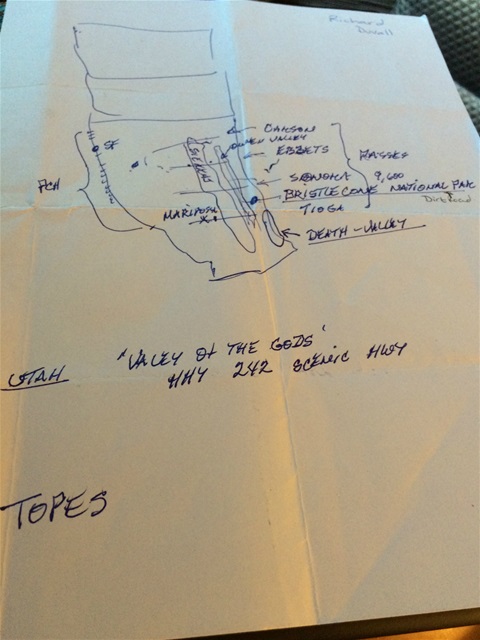 Richard
Duvall
CARSON
OWEN VALLEY
SF
EBBETS
PASSES
SIERRAS
PCH
SONORA 9,600
BRISTLECONE NATIONAL PARK
Dirt Road
MARIPOSA
TIOGA
DEATH-VALLEY
UTAH "VALLEY OF THE GODS"
HWY 242 SCENIC HWY
TOPES